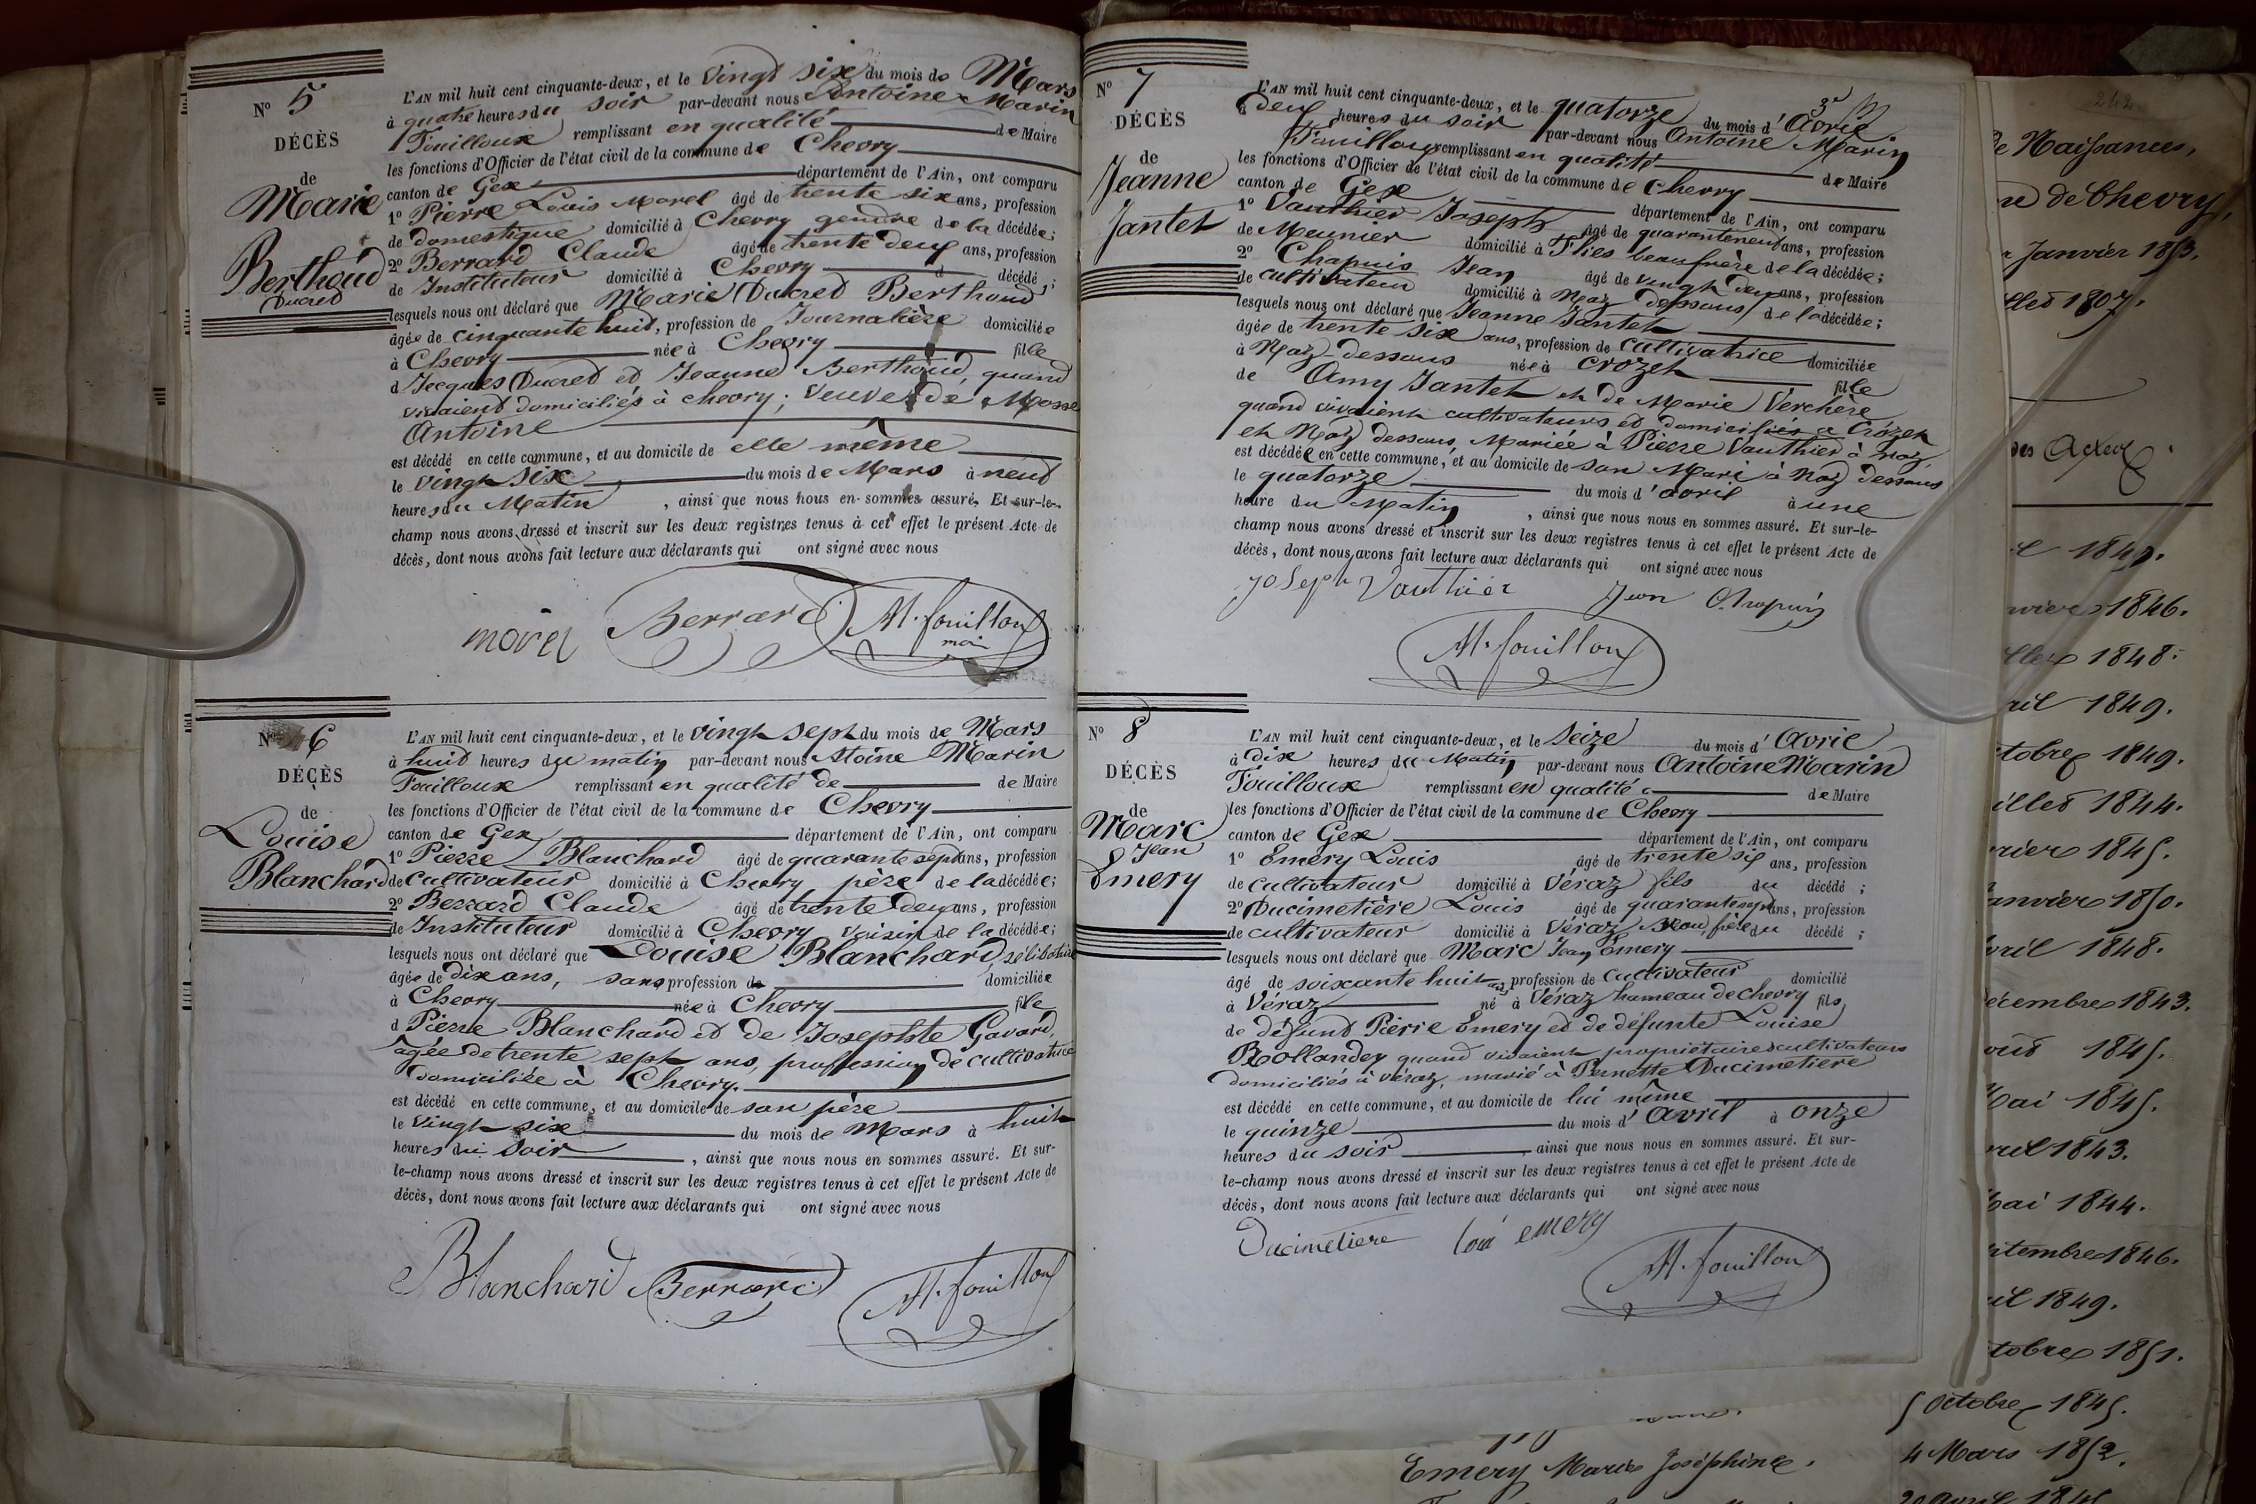 N° 5
DÉCÈS
de
Marie
Berthoud
Ducred
L'AN mil huit cent cinquante-deux, et le vingt six du mois de Mars
à quatre heures du soir par-devant nous Antoine Marin
Fouilloux remplissant en qualité de Maire
les fonctions d'Officier de l'état civil de la commune de Chevry
canton de Gex département de l'Ain, ont comparu
1° Pierre Louis Morel âgé de trente six ans, profession
de domestique domicilié à Chevry gendre de la décédée;
2° Berrard Claude âgé de trente deux ans, profession
de Instituteur domicilié à Chevry d décédé,;
lesquels nous ont déclaré que Marie Ducred Berthoud
âgée de cinquante huit, profession de Journalière domiciliée
à Chevry née à Chevry fille
d Jacques Ducred et Jeanne Berthoud, quand
vivaient domiciliés à chevry; veuve de Mosse
Antoine
est décédé en cette commune, et au domicile de elle même
le vingt six du mois de Mars à neuf
heures du Matin, ainsi que nous nous en sommes assuré. Et sur-le-
champ nous avons dressé et inscrit sur les deux registres tenus à cet effet le présent Acte de
décès, dont nous avons fait lecture aux déclarants qui ont signé avec nous
morel Berrard M. fouilloux
N° 6
DÉCÈS
de
Louise
Blanchard
L'AN mil huit cent cinquante-deux, et le vingt sept du mois de Mars
à huit heures du matin par-devant nous Atoine Marin
Fouilloux remplissant en qualité de de Maire
les fonctions d'Officier de l'état civil de la commune de Chevry
canton de Gex département de l'Ain, ont comparu
1° Pierre Blanchard âgé de quarante sept ans, profession
de cultivateur domicilié à Chevry père de la décédée;
2° Berrard Claude âgé de trente deux ans, profession
de Instituteur domicilié à Chevry voisin de la décédée;
lesquels nous ont déclaré que Louise Blanchard, célibataire
âgée de dix ans, sans profession de domiciliée
à Chevry née à Chevry fille
d Pierre Blanchard et de Josephte Gavard,
âgée de trente sept ans, profession de cultivatrice
domiciliée à Chevry.
est décédé en cette commune, et au domicile de son père
le vingt six du mois de Mars à huit
heures du soir, ainsi que nous nous en sommes assuré. Et sur-
le-champ nous avons dressé et inscrit sur les deux registres tenus à cet effet le présent Acte de
décès, dont nous avons fait lecture aux déclarants qui ont signé avec nous
Blanchard Berrard M. fouilloux
N° 7
DÉCÈS
de
Jeanne
Jantet
L'AN mil huit cent cinquante-deux, et le quatorze du mois d'avril
à deux heures du soir par-devant nous Antoine Marin
Fouilloux remplissant en qualité de Maire
les fonctions d'Officier de l'état civil de la commune de Chevry
canton de Gex département de l'Ain, ont comparu
1° Vauthier Joseph âgé de quarante neuf ans, profession
de Meunier domicilié à Flies beaufrère de la décédée;
2° Chapuis Jean âgé de vingt deux ans, profession
de cultivateur domicilié à Naz dessous de la décédée;
lesquels nous ont déclaré que Jeanne Jantet
âgée de trente six ans, profession de cultivatrice domiciliée
à Naz dessous née à Crozet fille
de Amy Jantet et de Marie Verchère
quand vivaient cultivateurs et domiciliés à Crozet
et Naz dessous, Mariée à Pierre Vauthier à naz,
est décédée en cette commune, et au domicile de son Mari à Naz dessous
le quatorze du mois d'avril à une
heure du Matin, ainsi que nous nous en sommes assuré. Et sur-le-
champ nous avons dressé et inscrit sur les deux registres tenus à cet effet le présent Acte de
décès, dont nous avons fait lecture aux déclarants qui ont signé avec nous
Joseph Vauthier Jean Chapuis
M. fouilloux
N° 8
DÉCÈS
de
Marc
Jean
Emery
L'AN mil huit cent cinquante-deux, et le seize du mois d'Avril
à dix heures du Matin par-devant nous Antoine Marin
Fouilloux remplissant en qualité de Maire
les fonctions d'Officier de l'état civil de la commune de Chevry
canton de Gex département de l'Ain, ont comparu
1° Emery Louis âgé de trente six ans, profession
de cultivateur domicilié à Véraz fils du décédé;
2° Ducimetière Louis âgé de quarante sept ans, profession
de cultivateur domicilié à Véraz Beau frère du décédé;
lesquels nous ont déclaré que Marc Jean Emery
âgé de soixante huit ans, profession de Cultivateur domicilié
à Véraz né à Véraz hameau de chevry fils
de défunt Pierre Emery et de défunte Louise
Rollandey quand vivaient propriétaires cultivateurs
domiciliés à Véraz, marié à Pernette Ducimetiere
est décédé en cette commune, et au domicile de lui même
le quinze du mois d'avril à onze
heures du soir, ainsi que nous nous en sommes assuré. Et sur-
le-champ nous avons dressé et inscrit sur les deux registres tenus à cet effet le présent Acte de
décès, dont nous avons fait lecture aux déclarants qui ont signé avec nous
Ducimetiere loui emery
M. fouilloux
de Naissances,
de Chevry,
Janvier 1853.
1807.
des Actes
1849.
1846.
1848.
1849.
octobre 1849.
1844.
1845.
Janvier 1850.
avril 1848.
décembre 1843.
1845.
Mai 1845.
1843.
Mai 1844.
septembre 1846.
1849.
octobre 1851.
5 octobre 1845.
Emery Marie Joséphine.
4 Mars 1852.